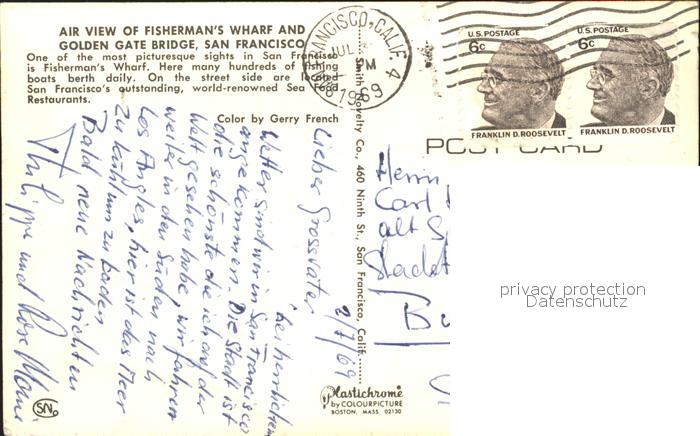 AIR VIEW OF FISHERMAN'S WHARF AND
GOLDEN GATE BRIDGE, SAN FRANCISCO
One of the most picturesque sights in San Francisco
is Fisherman's Wharf. Here many hundreds of fishing
boats berth daily. On the street side are located
San Francisco's outstanding, world-renowned Sea Food
Restaurants.
Color by Gerry French
Smith Novelty Co., 460 Ninth St., San Francisco, Calif.
FRANCISCO, CALIF. 4
JUL
PM
1969
U.S. POSTAGE
6c
FRANKLIN D. ROOSEVELT
U.S. POSTAGE
6c
FRANKLIN D. ROOSEVELT
POST CARD
9/7/69
Lieber Grossvater,
bei herrlichem
Wetter sind wir in San Francisco
angekommen. Die Stadt ist
die schönste die ich auf der
Welt gesehen habe, wir fahren
weiter in den Süden nach
Los Angles, hier ist das Meer
zu kalt um zu baden
Bald neue Nachrichten
Philippe und Rose Marie
Herrn
Carl
alt S
Stadt
Bu
privacy protection
Datenschutz
Plastichrome
by COLOURPICTURE
BOSTON, MASS. 02130
SN